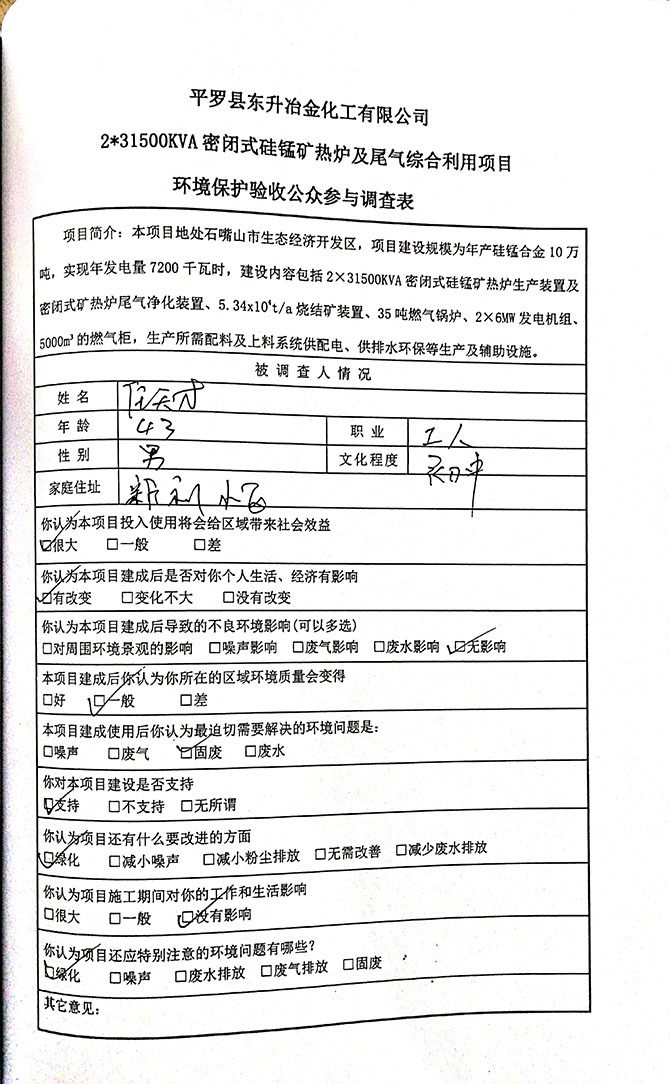 平罗县东升冶金化工有限公司
2*31500KVA密闭式硅锰矿热炉及尾气综合利用项目
环境保护验收公众参与调查表
项目简介：本项目地处石嘴山市生态经济开发区，项目建设规模为年产硅锰合金10万
吨，实现年发电量7200千瓦时，建设内容包括2×31500KVA密闭式硅锰矿热炉生产装置及
密闭式矿热炉尾气净化装置、5.34x10⁴t/a烧结矿装置、35吨燃气锅炉、2×6MW发电机组、
5000m³的燃气柜，生产所需配料及上料系统供配电、供排水环保等生产及辅助设施。
被调查人情况
姓名
年龄 43 职业 工人
性别 男 文化程度 初中
家庭住址 新利
你认为本项目投入使用将会给区域带来社会效益
☑很大 □一般 □差
你认为本项目建成后是否对你个人生活、经济有影响
☑有改变 □变化不大 □没有改变
你认为本项目建成后导致的不良环境影响(可以多选)
□对周围环境景观的影响 □噪声影响 □废气影响 □废水影响 ☑无影响
本项目建成后你认为你所在的区域环境质量会变得
□好 ☑一般 □差
本项目建成使用后你认为最迫切需要解决的环境问题是：
□噪声 □废气 ☑固废 □废水
你对本项目建设是否支持
☑支持 □不支持 □无所谓
你认为项目还有什么要改进的方面
☑绿化 □减小噪声 □减小粉尘排放 □无需改善 □减少废水排放
你认为项目施工期间对你的工作和生活影响
□很大 □一般 ☑没有影响
你认为项目还应特别注意的环境问题有哪些？
☑绿化 □噪声 □废水排放 □废气排放 □固废
其它意见：